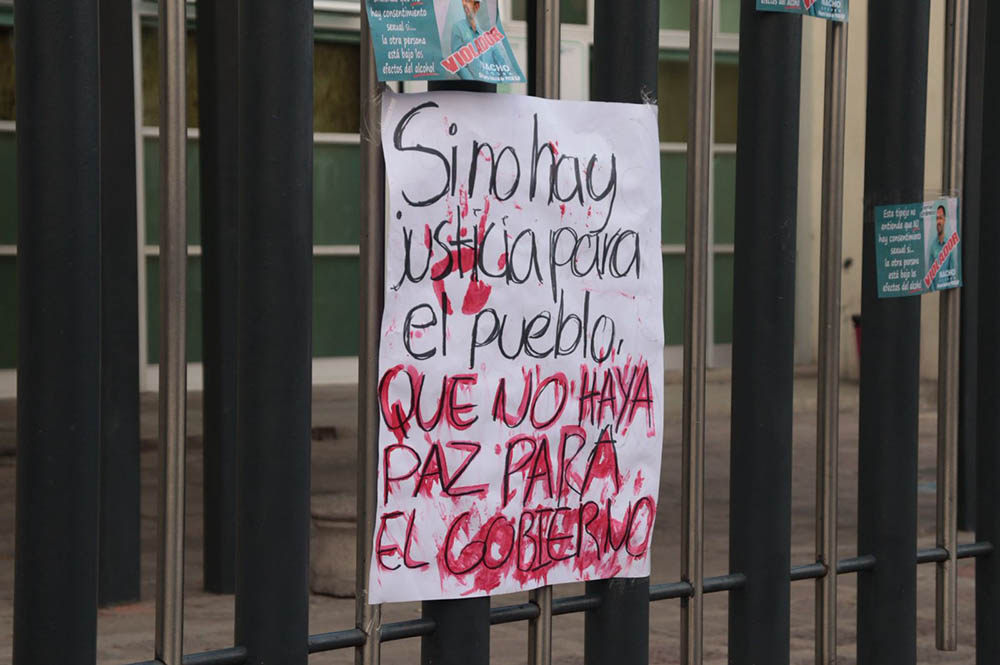 sexual si...
la otra persona
está bajo los
efectos del alcohol
VIOLADOR
NACHO
efectos del alcohol
Si no hay
justicia para
el pueblo,
QUE NO HAYA
PAZ PARA
EL GOBIERNO
Este tipejo no
entiende que NO
hay consentimiento
sexual si...
la otra persona
está bajo los
efectos del alcohol
VIOLADOR
NACHO